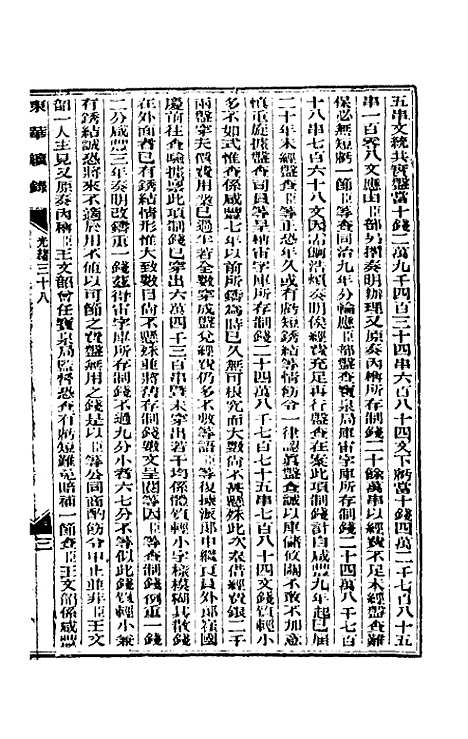 五串文統共實盤當十錢二萬九千四百三十四串六百八十四文下虧當十錢四萬二千七百八十五
串一百零八文應由臣部另摺奏明辦理又原奏丙檐所存制錢二十餘萬串以經費不足未經盤查難
保必無短虧一節臣等查同治九年分輪應臣部盤查寶泉局庫宙字庫所存制錢二十四萬八千七百
十八串七百六十八文因需餉浩煩奏明俟經費充足再行盤查在案此項制錢計自咸豐九年起已屆
二十年未經盤查臣等正恐年久或有虧短銹結等情飭令一律認真盤查誠以庫儲攸關不敢不加意
慎重旋據盤查司員等呈稱宙字庫所存制錢二十四萬八千七百七十五串七百八十四文錢質輕小
多不如式惟查係咸豐七年以前所鑄為時已久無可根究而大數尚不甚懸殊此次奏借經費銀二千
兩盤穿夫價費用業已穿成盤兌經費仍多不敷等語臣等復據派郎中繼良員外郎程國
慶前往查驗據稟此項制錢已穿出六萬四千三百串暨未穿出若干均係體質輕小字樣模糊其散錢
在外面者已有銹結情形惟大致數目尚不懸殊並將舊存制錢數文呈閱等因臣等查制錢例重一錢
二分咸豐三年奏明改鑄重一錢茲得宙字庫所存制錢不過九分小者六七分不等似此錢質輕小兼
有銹結誠恐將來不適於用不值以可節之費盤無用之錢是以臣等公同商酌飭令中止並非臣王文
韶一人主見又原奏丙檐臣王文韶曾任寶泉局監督恐查有虧短難免賠補一節查臣王文韶係咸豐
東華續錄
光緒三十八
三